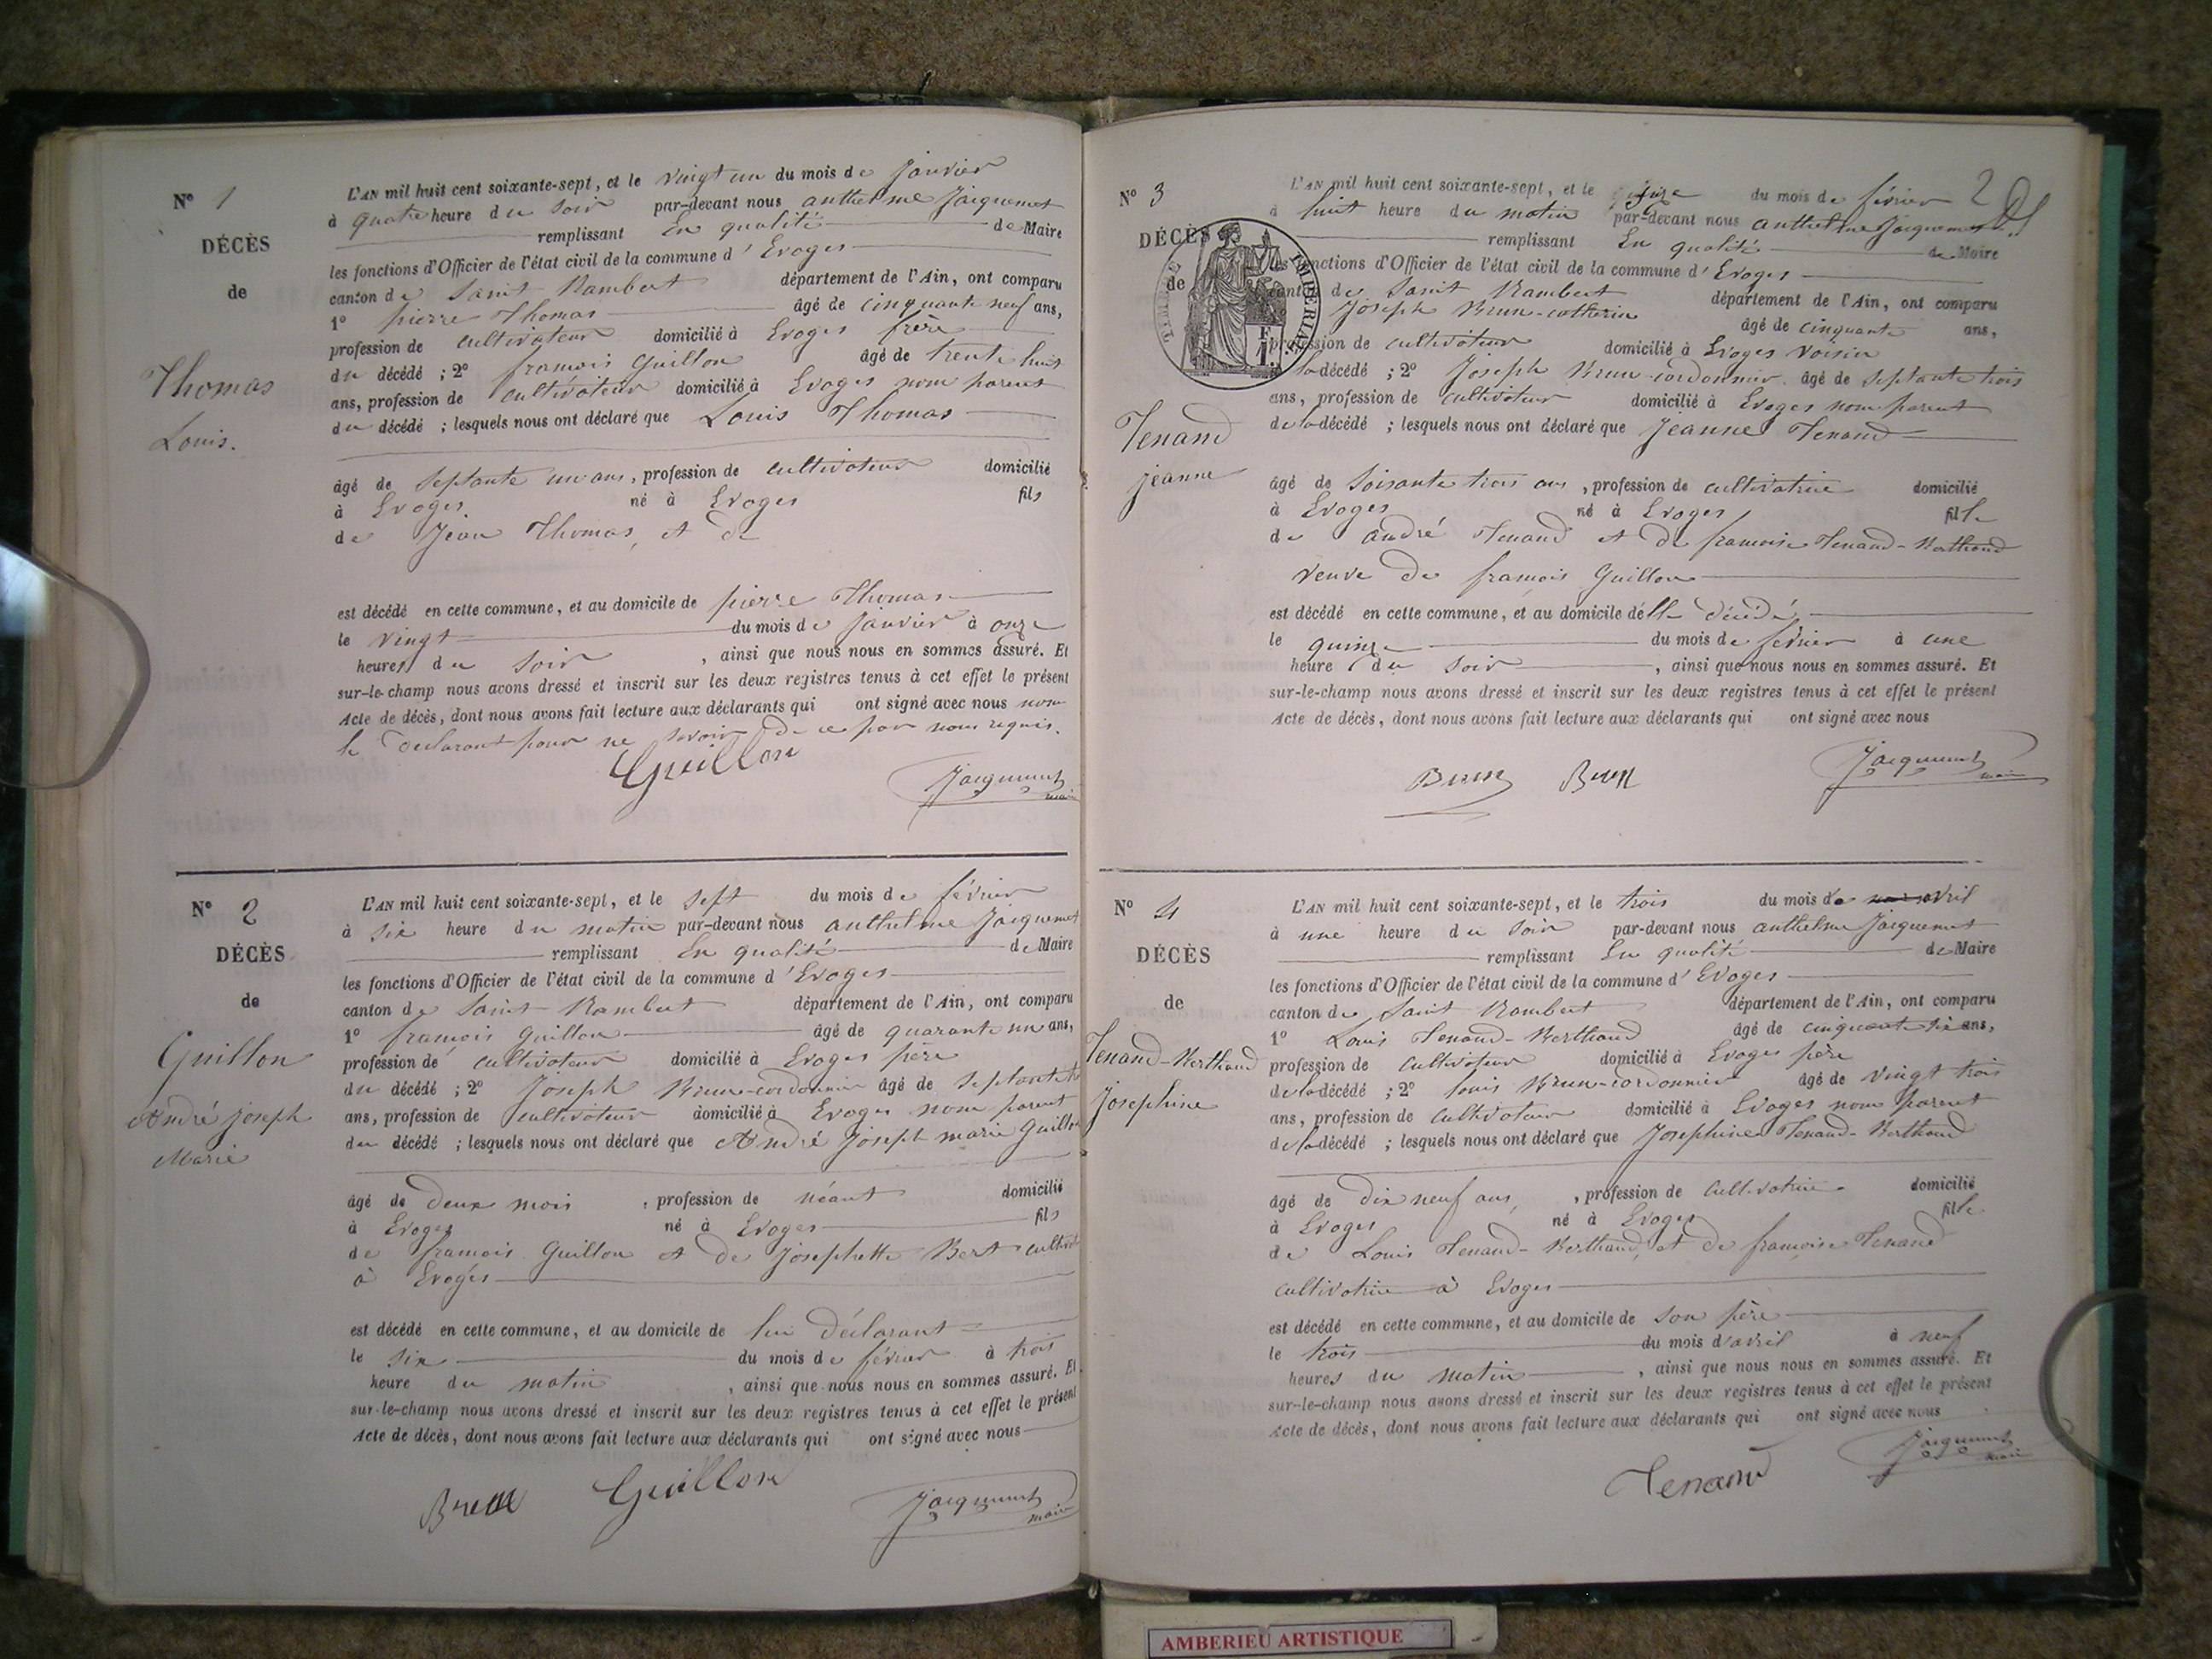 N° 1
DÉCÈS
de
Thomas
Louis.
L'AN mil huit cent soixante-sept, et le vingt un du mois de janvier
à quatre heure du soir par-devant nous anthelme Jacquemet
remplissant En qualité de Maire
les fonctions d'Officier de l'état civil de la commune d'Evoges
canton de Saint Rambert département de l'Ain, ont comparu
1° pierre Thomas âgé de cinquante neuf ans,
profession de cultivateur domicilié à Evoges frère
du décédé ; 2° francois Guillon âgé de trente huit
ans, profession de cultivateur domicilié à Evoges nom parent
du décédé ; lesquels nous ont déclaré que Louis Thomas
âgé de septante un ans, profession de cultivateur domicilié
à Evoges né à Evoges fils
de Jean Thomas, et de
est décédé en cette commune, et au domicile de pierre Thomas
le vingt du mois de janvier à onze
heures du soir, ainsi que nous nous en sommes assuré. Et
sur-le-champ nous avons dressé et inscrit sur les deux registres tenus à cet effet le présent
Acte de décès, dont nous avons fait lecture aux déclarants qui ont signé avec nous non
le déclarant pour ne savoir de ce par nous requis.
Guillon
Jacquemet
maire
N° 2
DÉCÈS
de
Guillon
André joseph
Marie
L'AN mil huit cent soixante-sept, et le sept du mois de février
à six heure du matin par-devant nous anthelme Jacquemet
remplissant En qualité de Maire
les fonctions d'Officier de l'état civil de la commune d'Evoges
canton de Saint-Rambert département de l'Ain, ont comparu
1° francois Guillon âgé de quarante un ans,
profession de cultivateur domicilié à Evoges père
du décédé ; 2° Joseph Brun-cordonnier âgé de septante
ans, profession de cultivateur domicilié à Evoges nom parent
du décédé ; lesquels nous ont déclaré que André Joseph marie Guillon
âgé de deux mois, profession de néant domicilié
à Evoges né à Evoges fils
de francois Guillon et de Josephette Bert
à Evoges
est décédé en cette commune, et au domicile de lui déclarant
le six du mois de février à trois
heure du matin, ainsi que nous nous en sommes assuré. Et
sur-le-champ nous avons dressé et inscrit sur les deux registres tenus à cet effet le présent
Acte de décès, dont nous avons fait lecture aux déclarants qui ont signé avec nous
Brun Guillon
Jacquemet
maire
2
N° 3
DÉCÈS
de
TIMBRE IMPERIAL
1 F.
Tenand
jeanne
L'AN mil huit cent soixante-sept, et le du mois de février
à huit heure du matin par-devant nous anthelme Jacquemet
remplissant En qualité de Maire
les fonctions d'Officier de l'état civil de la commune d'Evoges
canton de Saint Rambert département de l'Ain, ont comparu
Joseph Brun-cottarin âgé de cinquante ans,
profession de cultivateur domicilié à Evoges voisin
la décédé ; 2° Joseph Brun-cordonnier âgé de septante trois
ans, profession de cultivateur domicilié à Evoges nom parent
de la décédé ; lesquels nous ont déclaré que Jeanne Tenand
âgé de soisante trois ans, profession de cultivatrice domicilié
à Evoges né à Evoges fille
de andré Tenand et de francoise Tenand-Berthand
veuve de francois Guillon
est décédé en cette commune, et au domicile de lle décédé
le quinze du mois de février à une
heure du soir, ainsi que nous nous en sommes assuré. Et
sur-le-champ nous avons dressé et inscrit sur les deux registres tenus à cet effet le présent
Acte de décès, dont nous avons fait lecture aux déclarants qui ont signé avec nous
Brun Brun
Jacquemet
maire
N° 4
DÉCÈS
de
Tenand-Berthand
Josephine
L'AN mil huit cent soixante-sept, et le trois du mois d'avril
à une heure du soir par-devant nous anthelme Jacquemet
remplissant En qualité de Maire
les fonctions d'Officier de l'état civil de la commune d'Evoges
canton de Saint Rambert département de l'Ain, ont comparu
1° Louis Tenand-Berthand âgé de cinquante six ans,
profession de cultivateur domicilié à Evoges père
de la décédé ; 2° louis Brun-cordonnier âgé de vingt trois
ans, profession de cultivateur domicilié à Evoges nom parent
de la décédé ; lesquels nous ont déclaré que Josephine Tenand-Berthand
âgé de dix neuf ans, profession de cultivatrice domicilié
à Evoges né à Evoges fille
de Louis Tenand-Berthand, et de francoise Tenand
cultivatrice à Evoges
est décédé en cette commune, et au domicile de son père
le trois du mois d'avril à neuf
heures du matin, ainsi que nous nous en sommes assuré. Et
sur-le-champ nous avons dressé et inscrit sur les deux registres tenus à cet effet le présent
Acte de décès, dont nous avons fait lecture aux déclarants qui ont signé avec nous
Tenand
Jacquemet
maire
AMBERIEU ARTISTIQUE